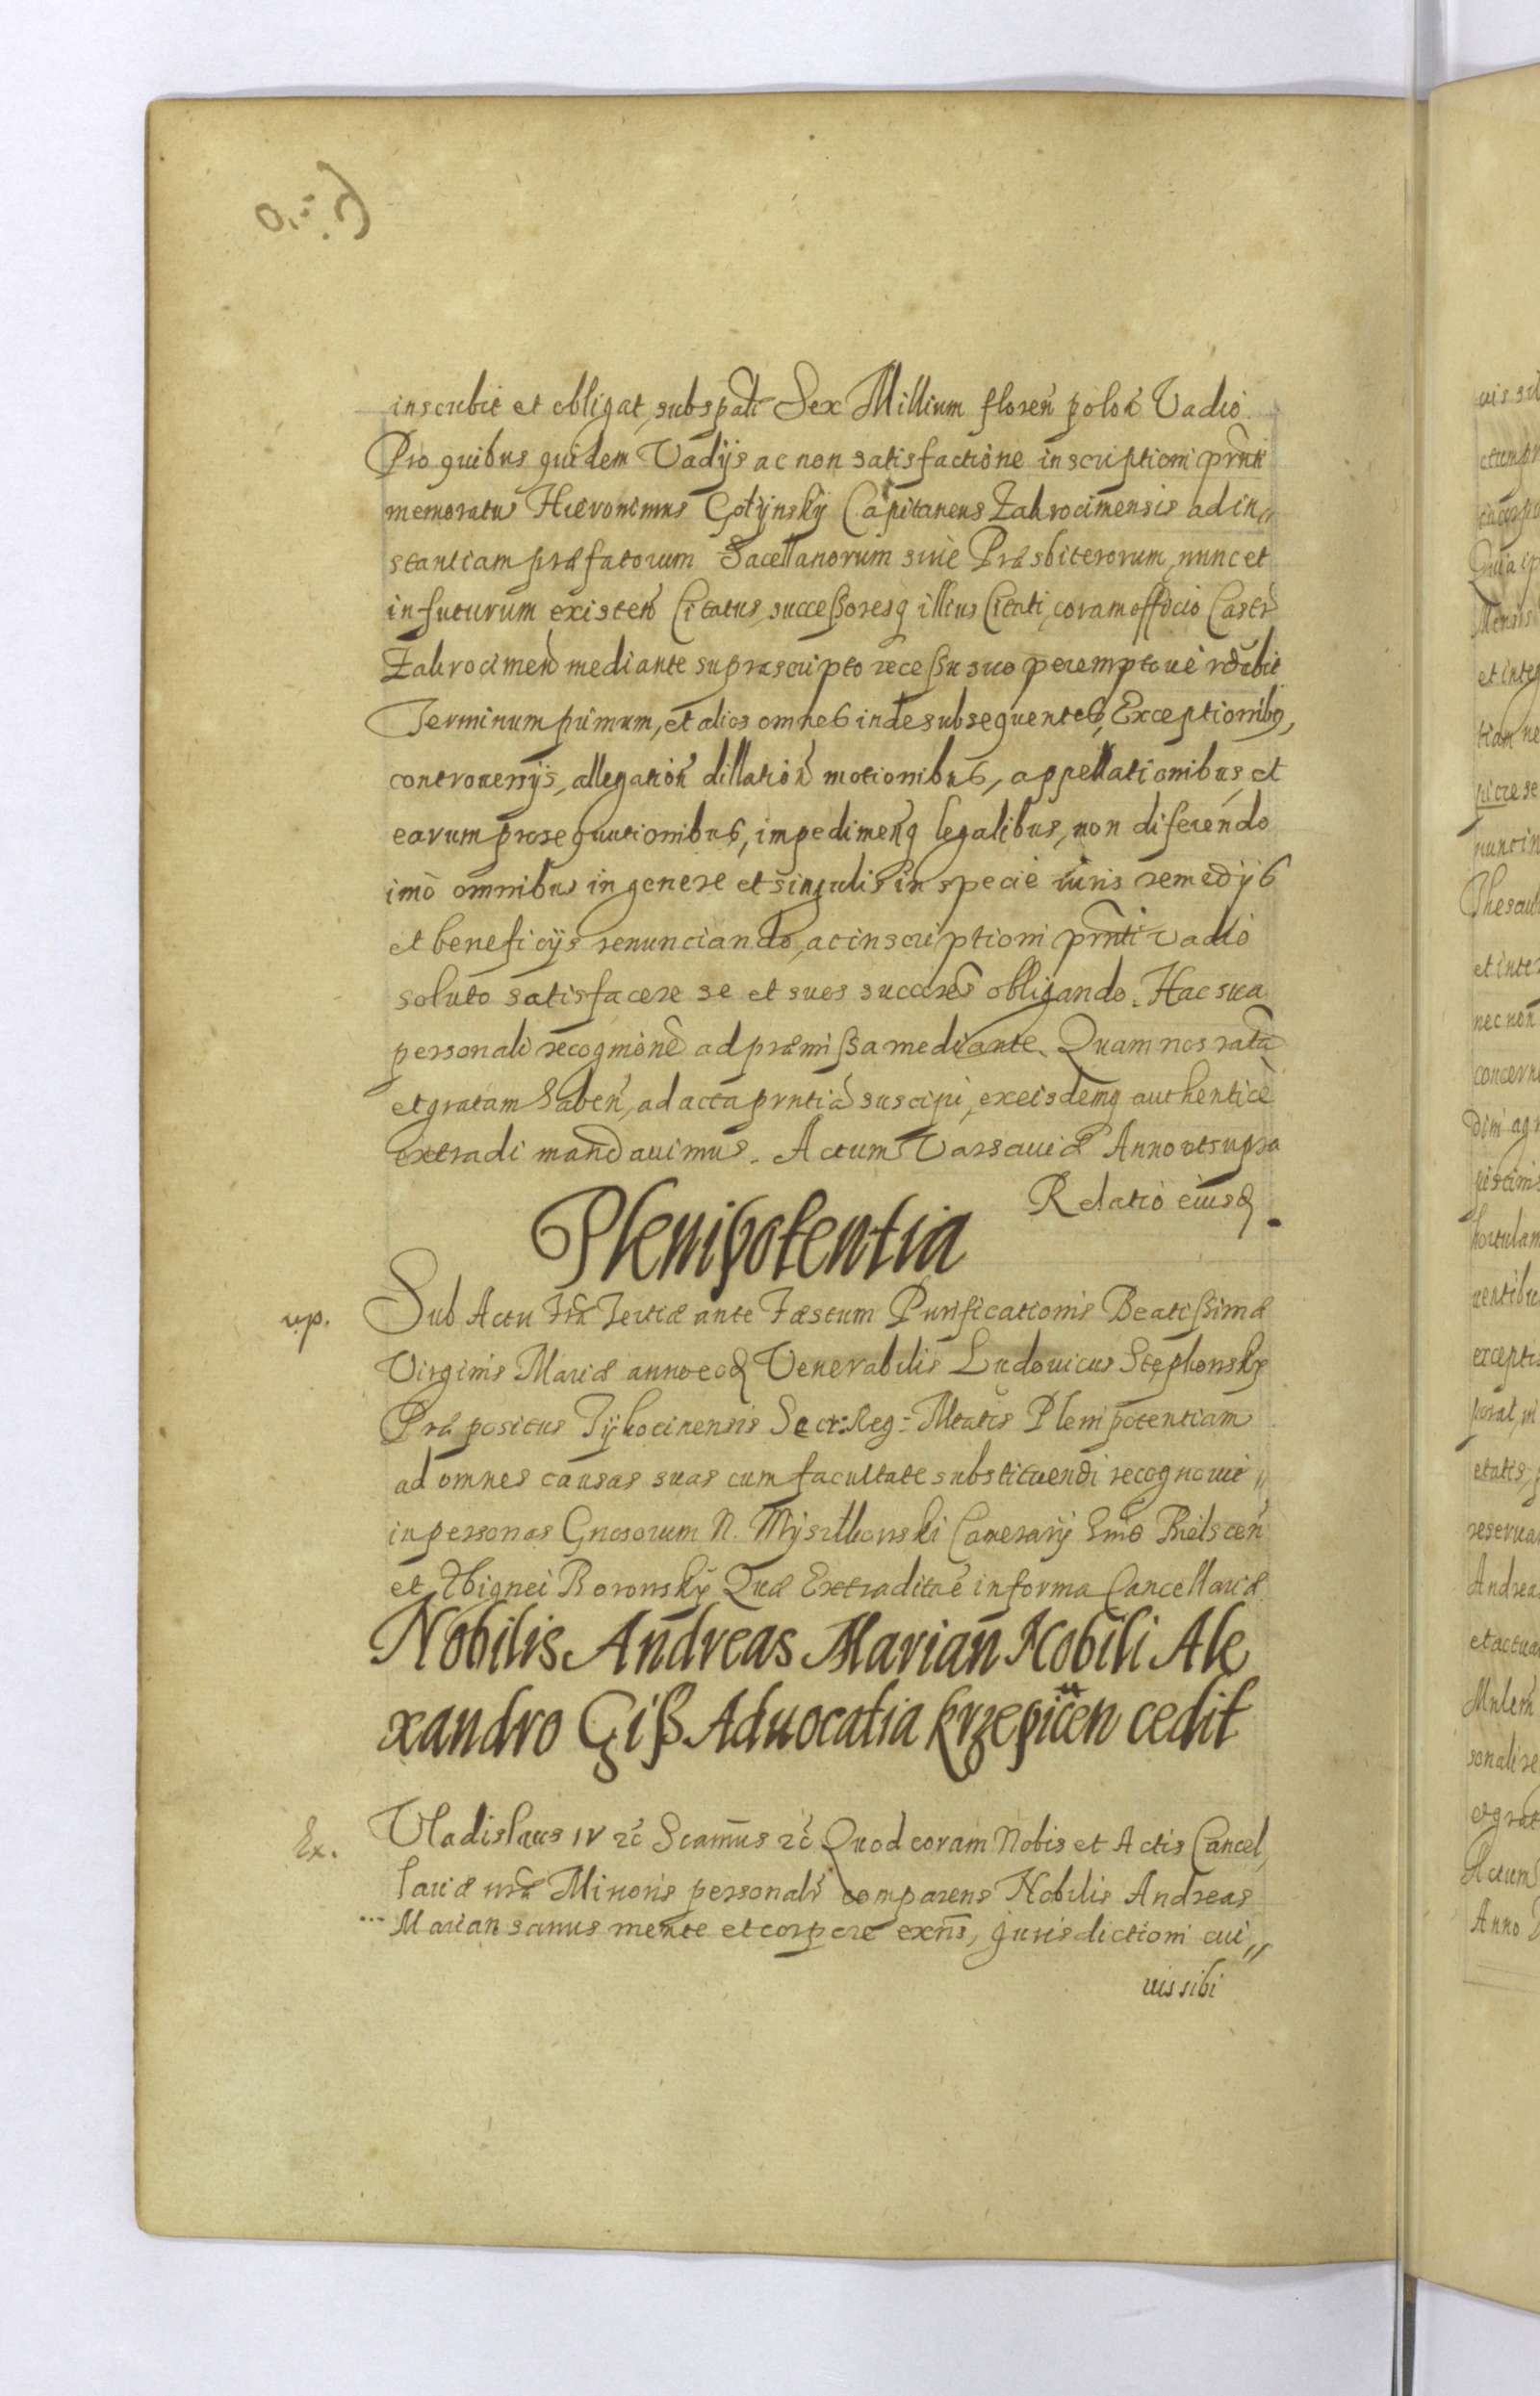 inscribit et obligat, sub spāli Sex Millium floreń polon̄ Vadio.
Pro quibus quidem Vadijs ac non satisfactione inscriptioni prn̄ti
memoratus Hieronimus Gotÿnskÿ Capitaneus Zakrocimensis ad in„
stantiam præfatorum Sacellanorum siue Præsbiterorum, nunc et
in futurum existen̄ Citatus, successoresq̨ illius Citati, coram officio Castr̄
Zakrocimen̄ mediante suprascripto recessu suo peremptoriè
Terminum primum, et alios omnes inde subsequentes, Exceptionibq,
controuersijs, allegation̄ dillation̄ motionibus, appellationibus, et
earum prosequutionibus, impedimen̄q̨ legalibus, non diferendo
imò omnibus in genere et singulis in specie iuris remedÿs
et beneficijs renunciando, ac inscriptioni prn̄ti vadio
soluto satisfacere se et suos succres̄ obligando. Hac sua
personali recognione ad præmissa mediante. Quam nos ratā
et gratam haben̄, ad acta prntiā suscipi, ex eisdemq̨ authenticè
extradi mandauimus. Actum Varsauiæ Anno vt supra
Relatio eiusd.
Plenipotentia
up. Sub Actu Fra Tertiæ ante Fæstum Purificationis Beatissimæ
Virginis Mariæ anno eod Venerabilis Ludouicus Stephonskÿ
Præpositus Tÿkocinensis Secr: Reg: Mtatis Plenipotentiam
ad omnes causas suas cum facultate substituendi recognouit„
in personas Gnosorum N. Camerarij Bielscen̄
et Zbignei Boronskÿ Quæ Extradita ē in forma Cancellariæ
Nobilis Andreas Marian Nobili Ale
xandro Giß Aduocatia krzepicen cedit
Ex. Vladislaus IV rc̄ Scamūs rc̄ Quod coram Nobis et Actis Cancel,
lariæ nr̄æ Minoris personalr̄ comparens Nobilis Andreas
Marian sanus mente et corpore exn̄s, jurisdictioni cui„
uis sibi